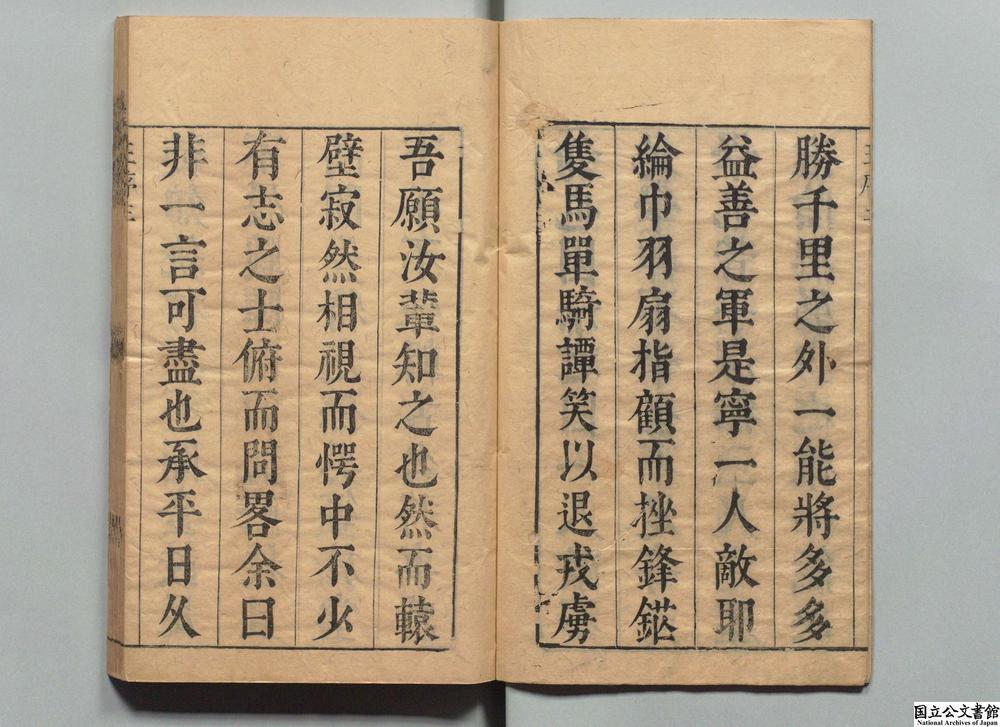 勝千里之外一能將多多
益善之軍是寧一人敵耶
綸巾羽扇指顧而挫鋒鋩
隻馬單騎譚笑以退戎虜
吾願汝輩知之也然而轅
壁寂然相視而愕中不少
有志之士俯而問畧余曰
非一言可盡也承平日久
国立公文書館
National Archives of Japan